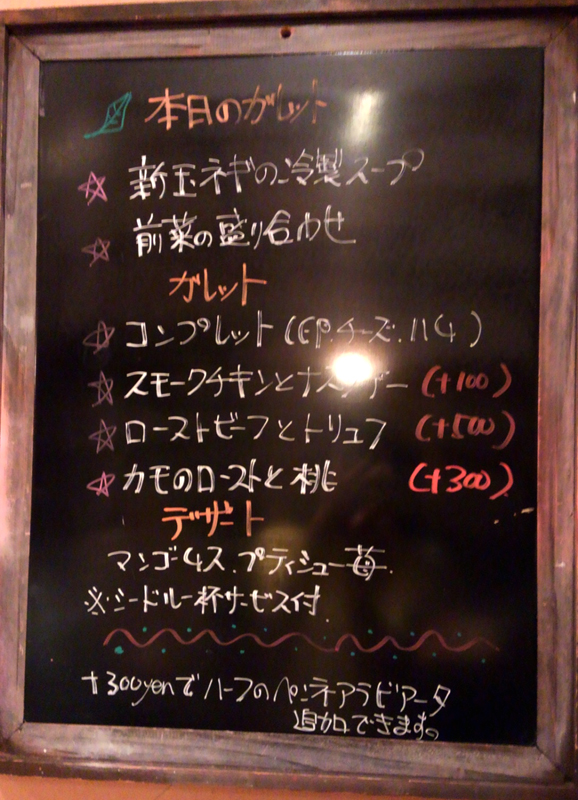 本日のガレット
☆ 新玉ネギの冷製スープ
☆ 前菜の盛り合わせ
ガレット
☆ コンプレット(EP.チーズ.ハム)
☆ スモークチキンとナス (+100)
☆ ローストビーフとトリュフ (+500)
☆ カモのローストと桃 (+300)
デザート
マンゴームース.プティシュー苺.
※シードル一杯サービス付.
+300yenでハーフのペンネアラビアータ
追加できます。